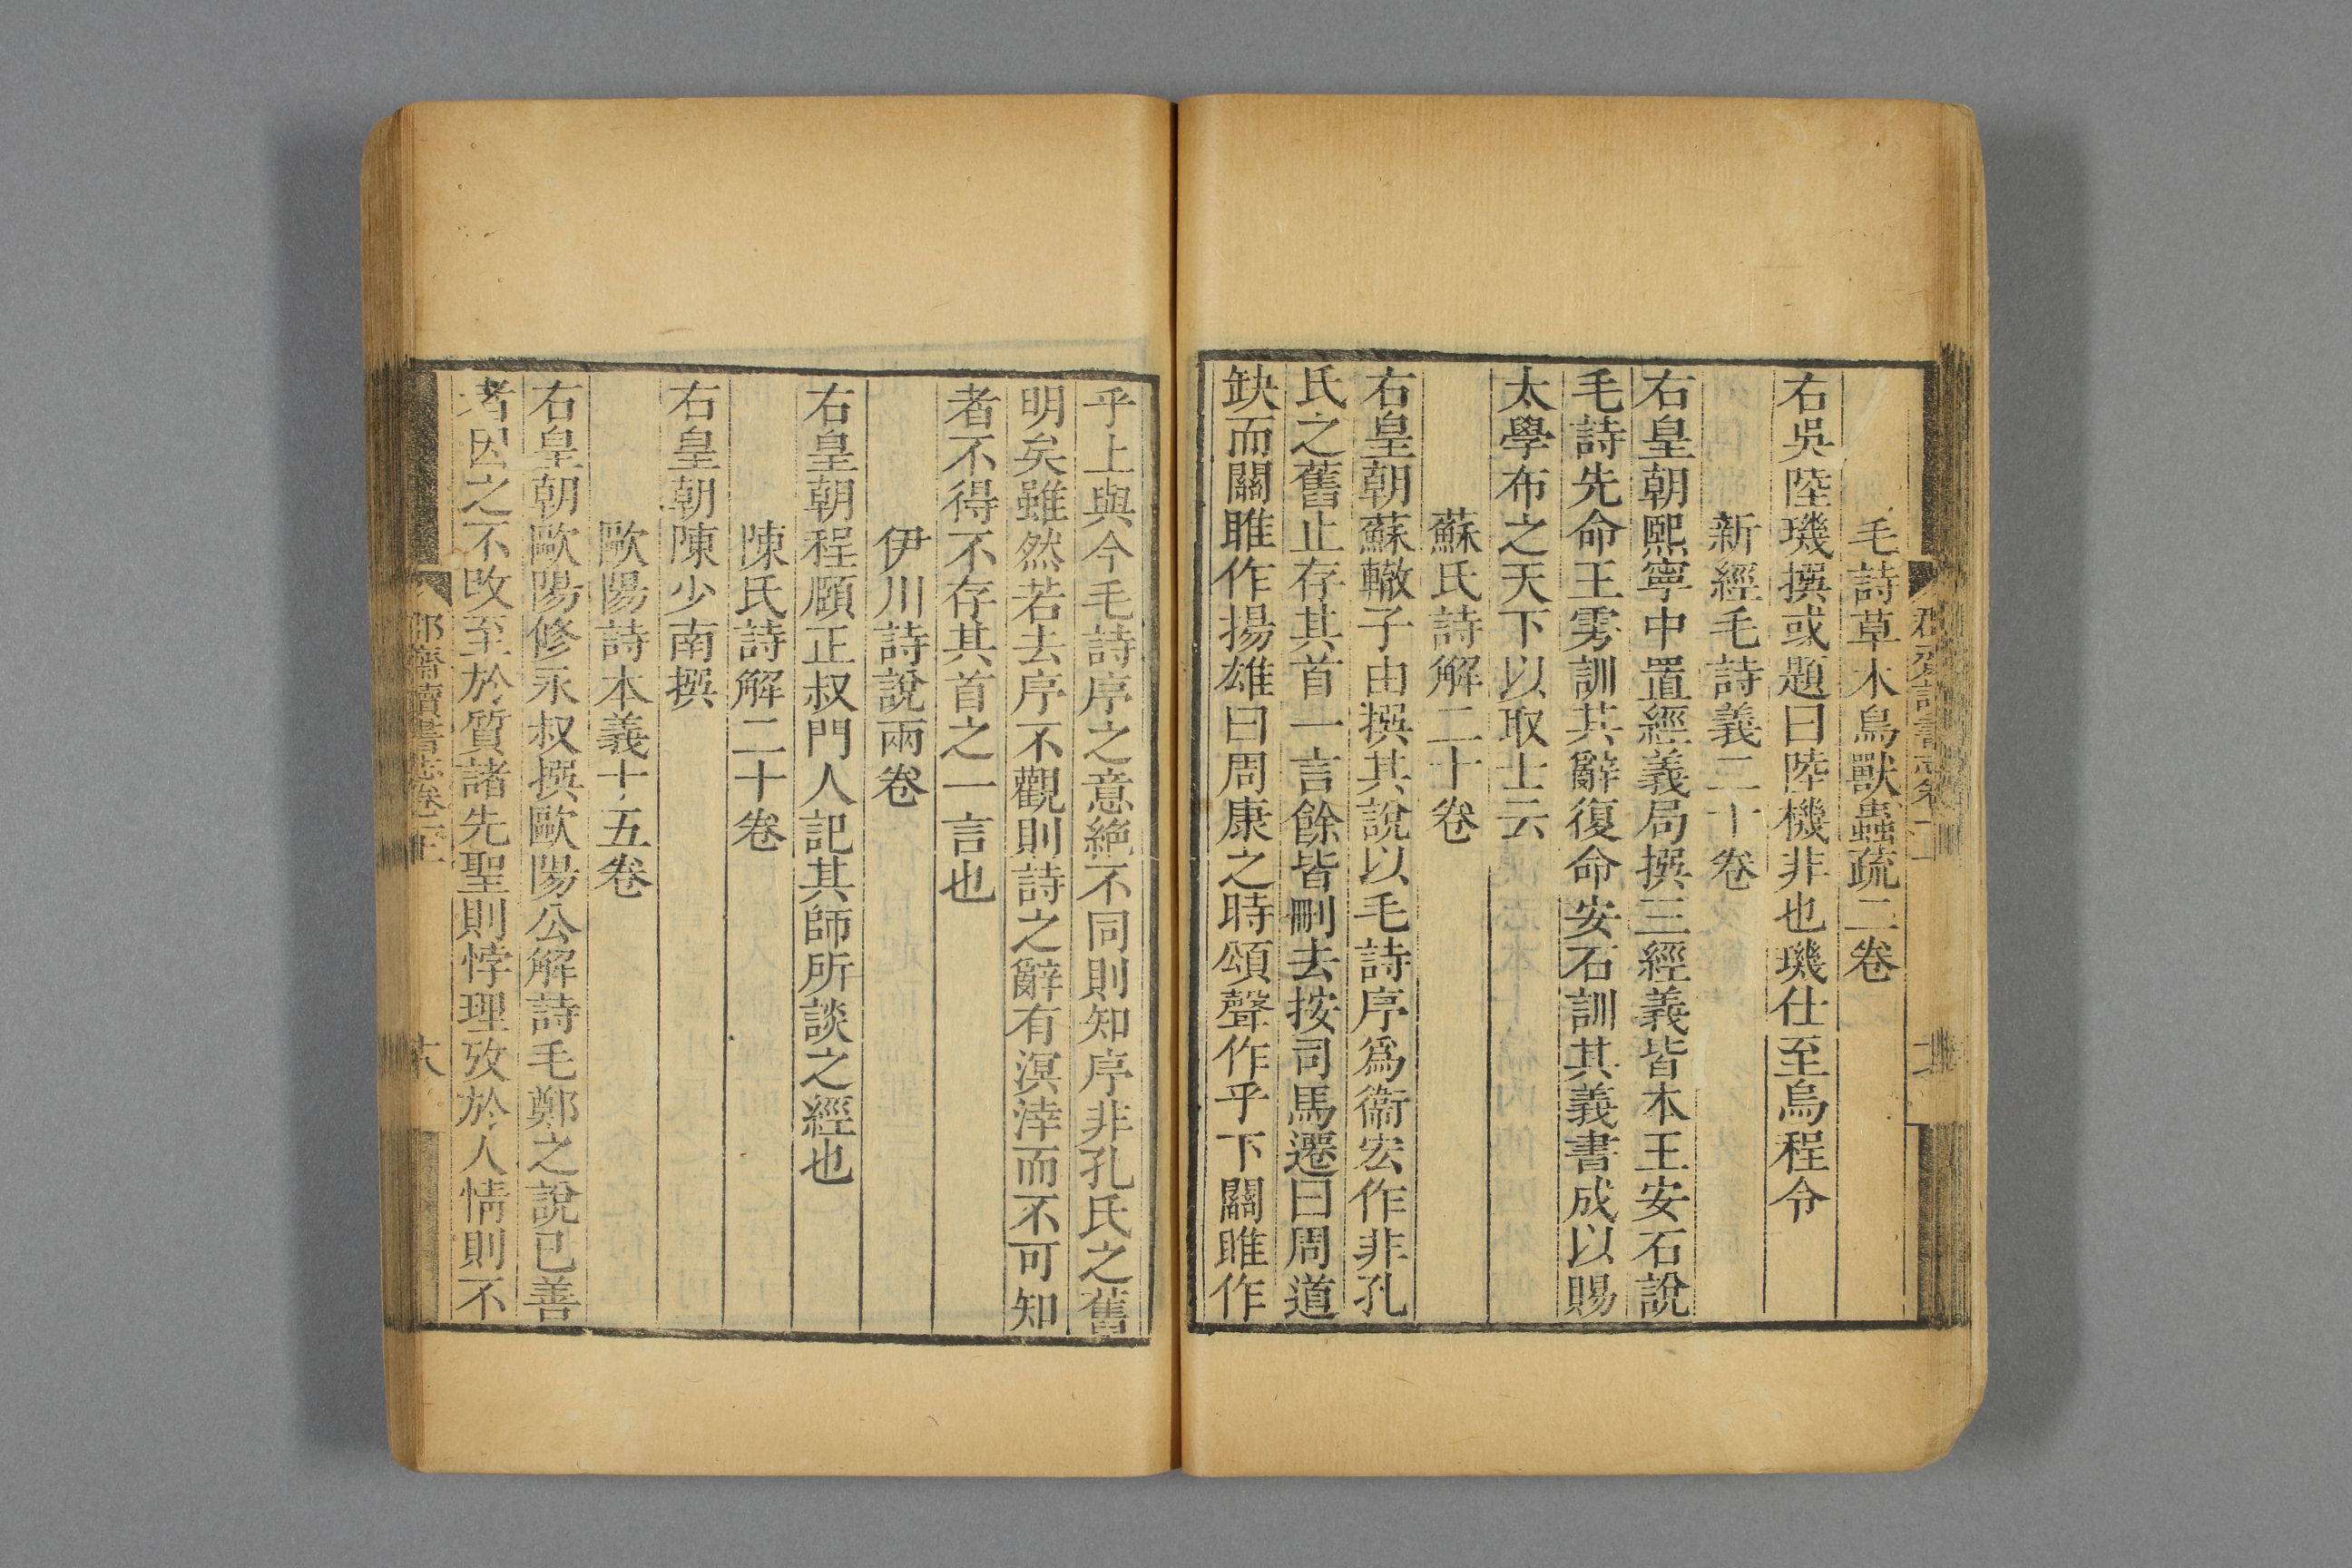 毛詩草木鳥獸蟲疏二卷
右吳陸璣撰或題曰陸機非也璣仕至烏程令
新經毛詩義二十卷
右皇朝熙寧中置經義局撰三經義皆本王安石說
毛詩先命王雱訓其辭復命安石訓其義書成以賜
太學布之天下以取士云
蘇氏詩解二十卷
右皇朝蘇轍子由撰其說以毛詩序爲衞宏作非孔
氏之舊止存其首一言餘皆刪去按司馬遷曰周道
缺而關雎作揚雄曰周康之時頌聲作乎下關雎作
乎上與今毛詩序之意絶不同則知序非孔氏之舊
明矣雖然若去序不觀則詩之辭有溟涬而不可知
者不得不存其首之一言也
伊川詩說兩卷
右皇朝程頤正叔門人記其師所談之經也
陳氏詩解二十卷
右皇朝陳少南撰
歐陽詩本義十五卷
右皇朝歐陽修永叔撰歐陽公解詩毛鄭之說已善
者因之不改至於質諸先聖則悖理攷於人情則不
郡齋讀書志卷上